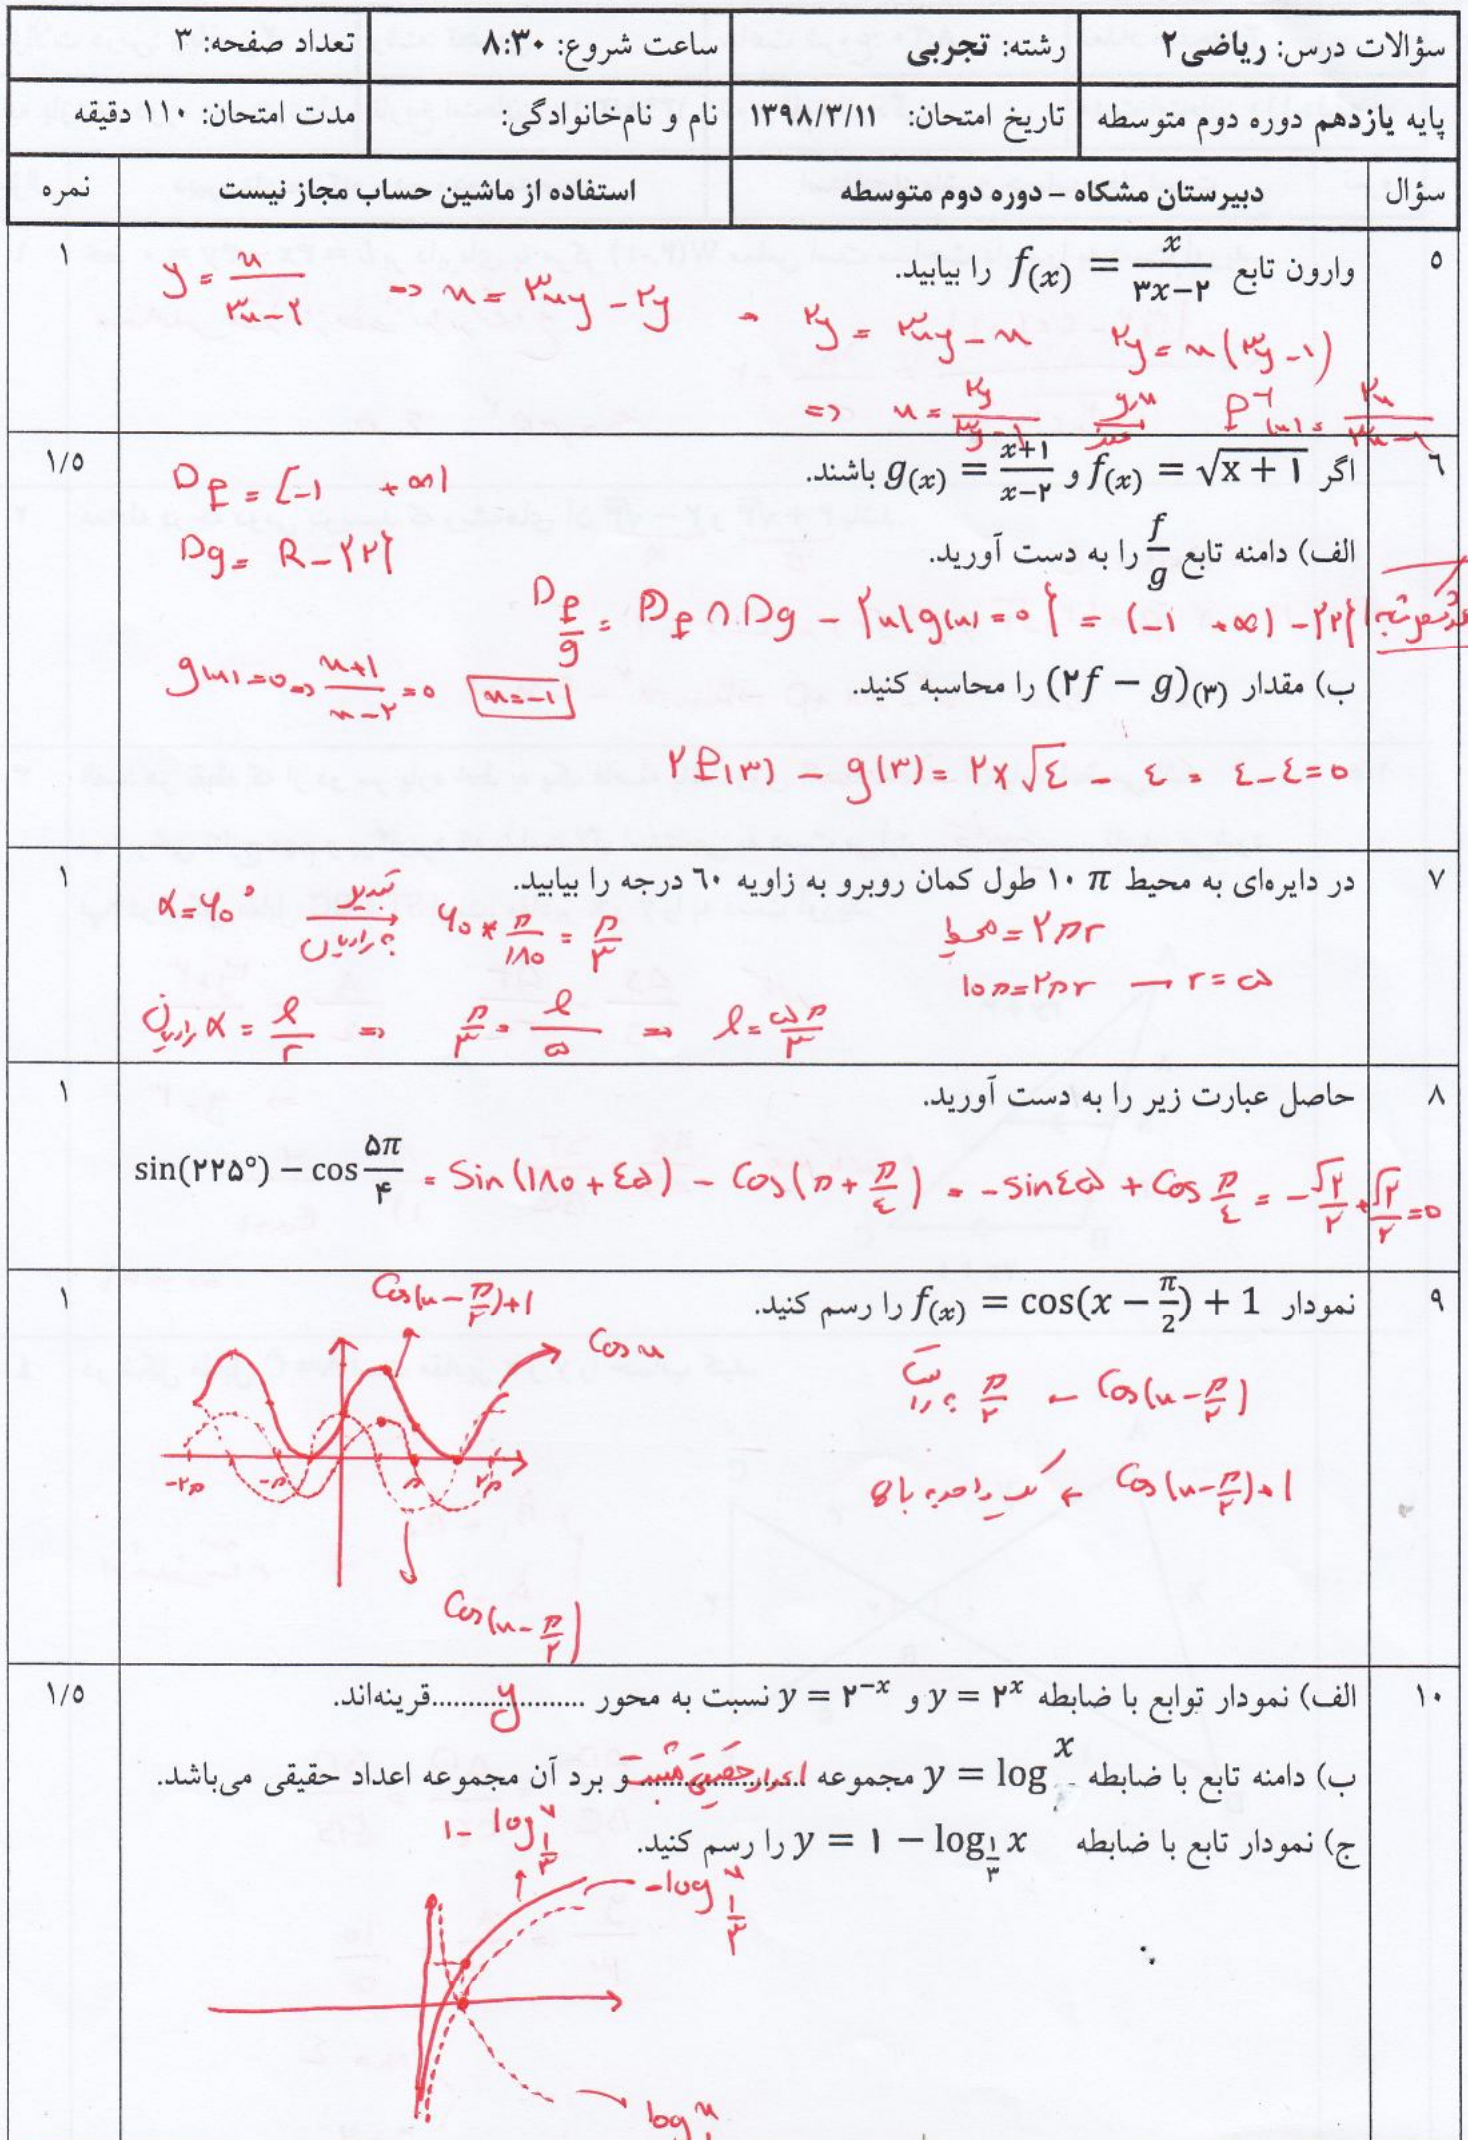 سؤالات درس: ریاضی۲ رشته: تجربی ساعت شروع: ۸:۳۰ تعداد صفحه: ۳
پایه یازدهم دوره دوم متوسطه تاریخ امتحان: ۱۳۹۸/۳/۱۱ نام و نام‌خانوادگی: مدت امتحان: ۱۱۰ دقیقه
سؤال دبیرستان مشکاه – دوره دوم متوسطه استفاده از ماشین حساب مجاز نیست نمره
۵ وارون تابع f(x) = x/(۳x−۲) را بیابید. ۱
y = x/(۳x−۲) => x = ۳xy − ۲y → ۲y = ۳xy − x ۲y = x(۳y −۱)
=> x = ۲y/(۳y−۱) f⁻¹(x) = ۲x/(۳x−۱)
۶ اگر f(x) = √(x + ۱) و g(x) = (x+۱)/(x−۲) باشند. ۱/۵
D_f = [−۱ +∞)
الف) دامنه تابع f/g را به دست آورید.
D_g = R − {۲}
D_f/g = D_f ∩ D_g − {x|g(x) = ۰} = (−۱ +∞) − {۲}
ب) مقدار (۲f − g)(۳) را محاسبه کنید.
g(x) = ۰ => (x+۱)/(x−۲) = ۰ x=−۱
۲f(۳) − g(۳) = ۲×√٤ − ٤ = ٤−٤=۰
۷ در دایره‌ای به محیط ۱۰ π طول کمان روبرو به زاویه ٦۰ درجه را بیابید. ۱
α=۶۰° تبدیل به رادیان ۶۰ × π/۱۸۰ = π/۳ محیط = ۲πr
۱۰π=۲πr → r=۵
رادیان α = l/r => π/۳ = l/۵ => l = ۵π/۳
۸ حاصل عبارت زیر را به دست آورید. ۱
sin(۲۲۵°) − cos ۵π/۴ = Sin(۱۸۰ + ٤۵) − Cos(π + π/٤) = −sin٤۵ + Cos π/٤ = −√۲/۲ + √۲/۲ = ۰
۹ نمودار f(x) = cos(x − π/2) + 1 را رسم کنید. ۱
Cos(x − π/۲)+۱
Cos x
Cos(x−π/۲) → π/۲ به راست
Cos(x−π/۲)+۱ → یک واحد به بالا
−۲π −π π ۲π
Cos(x−π/۲)
۱۰ الف) نمودار توابع با ضابطه y = ۲^x و y = ۲^−x نسبت به محور ......y......قرینه‌اند. ۱/۵
ب) دامنه تابع با ضابطه y = log x مجموعه اعداد حقیقی مثبت و برد آن مجموعه اعداد حقیقی می‌باشد.
ج) نمودار تابع با ضابطه y = ۱ − log_۱/۳ x را رسم کنید.
۱− log_۱/۳ x
−log_۱/۳ x
log x